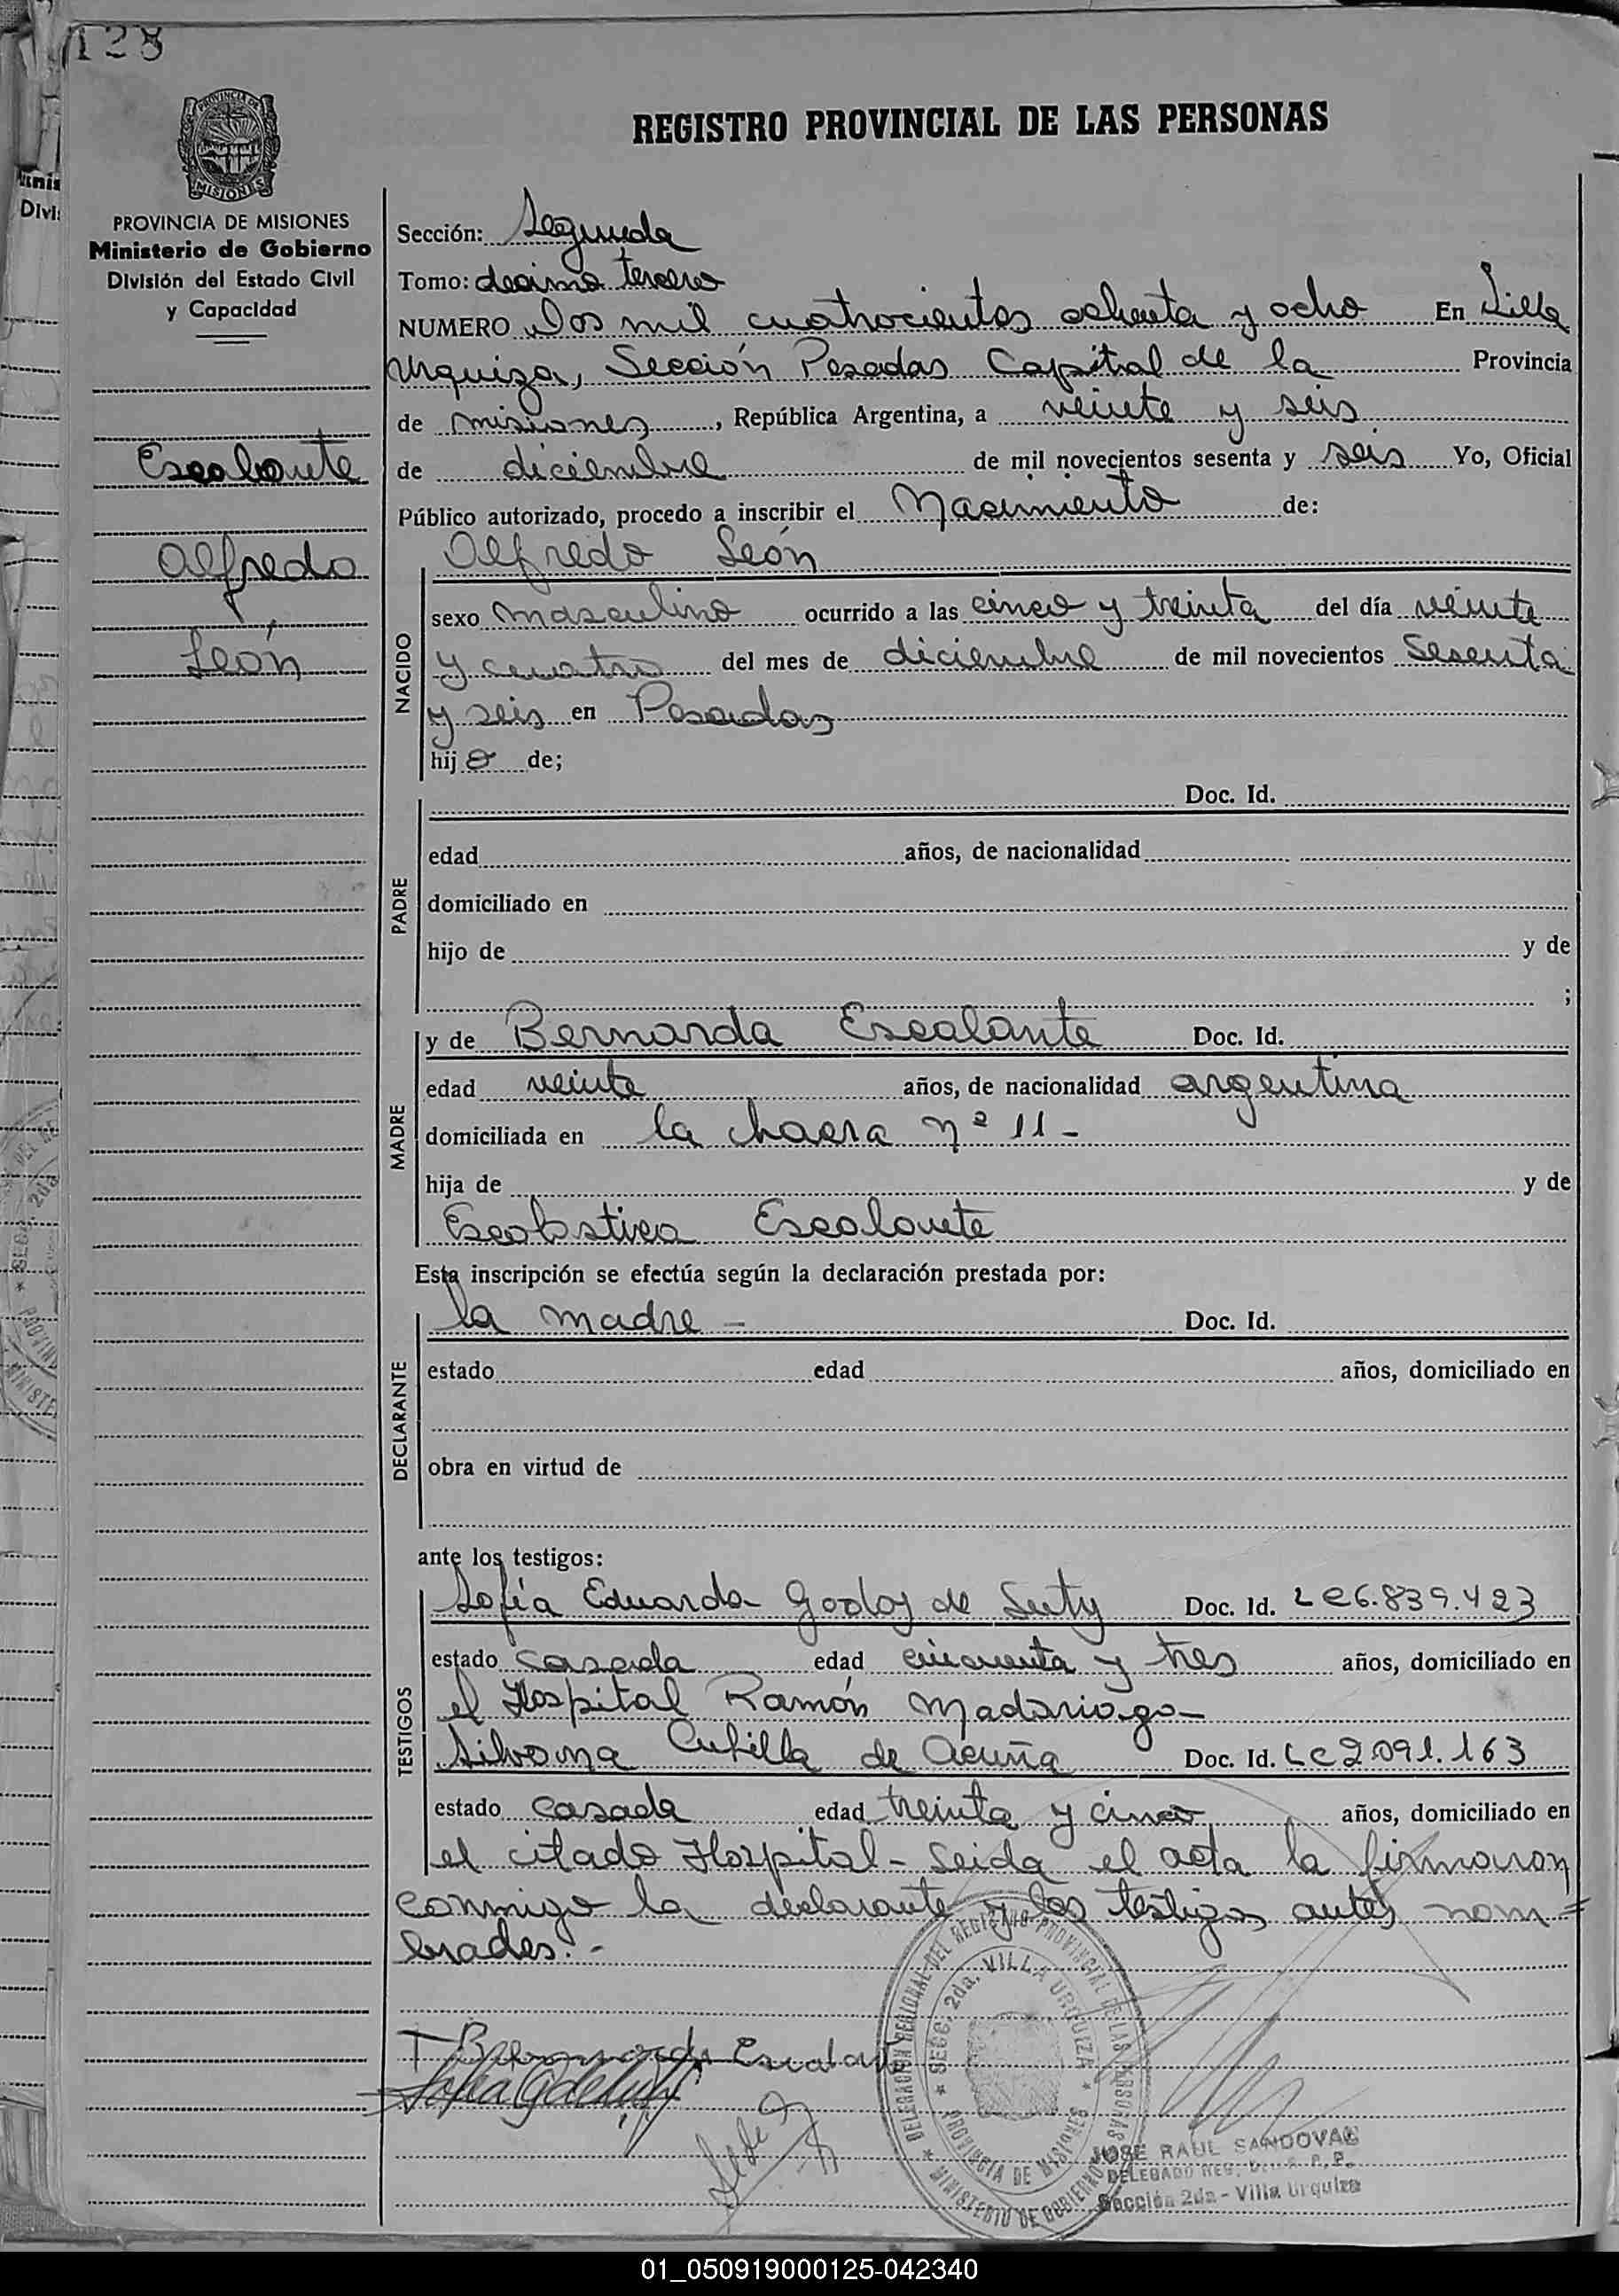 128
PROVINCIA DE MISIONES
REGISTRO PROVINCIAL DE LAS PERSONAS
PROVINCIA DE MISIONES
Ministerio de Gobierno
División del Estado Civil
y Capacidad
Escalante
Alfredo
León
Sección: Segunda
Tomo: decimo tercero
NUMERO Dos mil cuatrocientos ochenta y ocho En Villa
Urquiza, Sección Posadas Capital de la Provincia
de misiones, República Argentina, a veinte y seis
de diciembre de mil novecientos sesenta y seis Yo, Oficial
Público autorizado, procedo a inscribir el Nacimiento de:
Alfredo León
NACIDO
sexo masculino ocurrido a las cinco y treinta del día veinte
y cuatro del mes de diciembre de mil novecientos Sesenta
y seis en Posadas
hijo de;
PADRE
Doc. Id.
edad años, de nacionalidad
domiciliado en
hijo de y de
;
MADRE
y de Bernarda Escalante Doc. Id.
edad veinte años, de nacionalidad argentina
domiciliada en la chacra nº 11 -
hija de y de
Escolastica Escalante
Esta inscripción se efectúa según la declaración prestada por:
DECLARANTE
la madre - Doc. Id.
estado edad años, domiciliado en
obra en virtud de
ante los testigos:
TESTIGOS
Sofía Eduarda Godoy de Doc. Id. LC 6.839.423
estado casada edad cincuenta y tres años, domiciliado en
el Hospital Ramón Madariaga -
Silvana de Acuña Doc. Id. LC 2.091.163
estado casada edad treinta y cinco años, domiciliado en
el citado Hospital - Leida el acta la firmaron
conmigo la declarante y los testigos antes nom=
brados. -
Bernarda Escalante
DELEGACION REGIONAL DEL REGISTRO PROVINCIAL DE LAS PERSONAS
SECC. 2da. VILLA URQUIZA
PROVINCIA DE MISIONES
MINISTERIO DE GOBIERNO
JOSE RAUL SANDOVAL
DELEGADO REG.
Sección 2da - Villa Urquiza
01_050919000125-042340